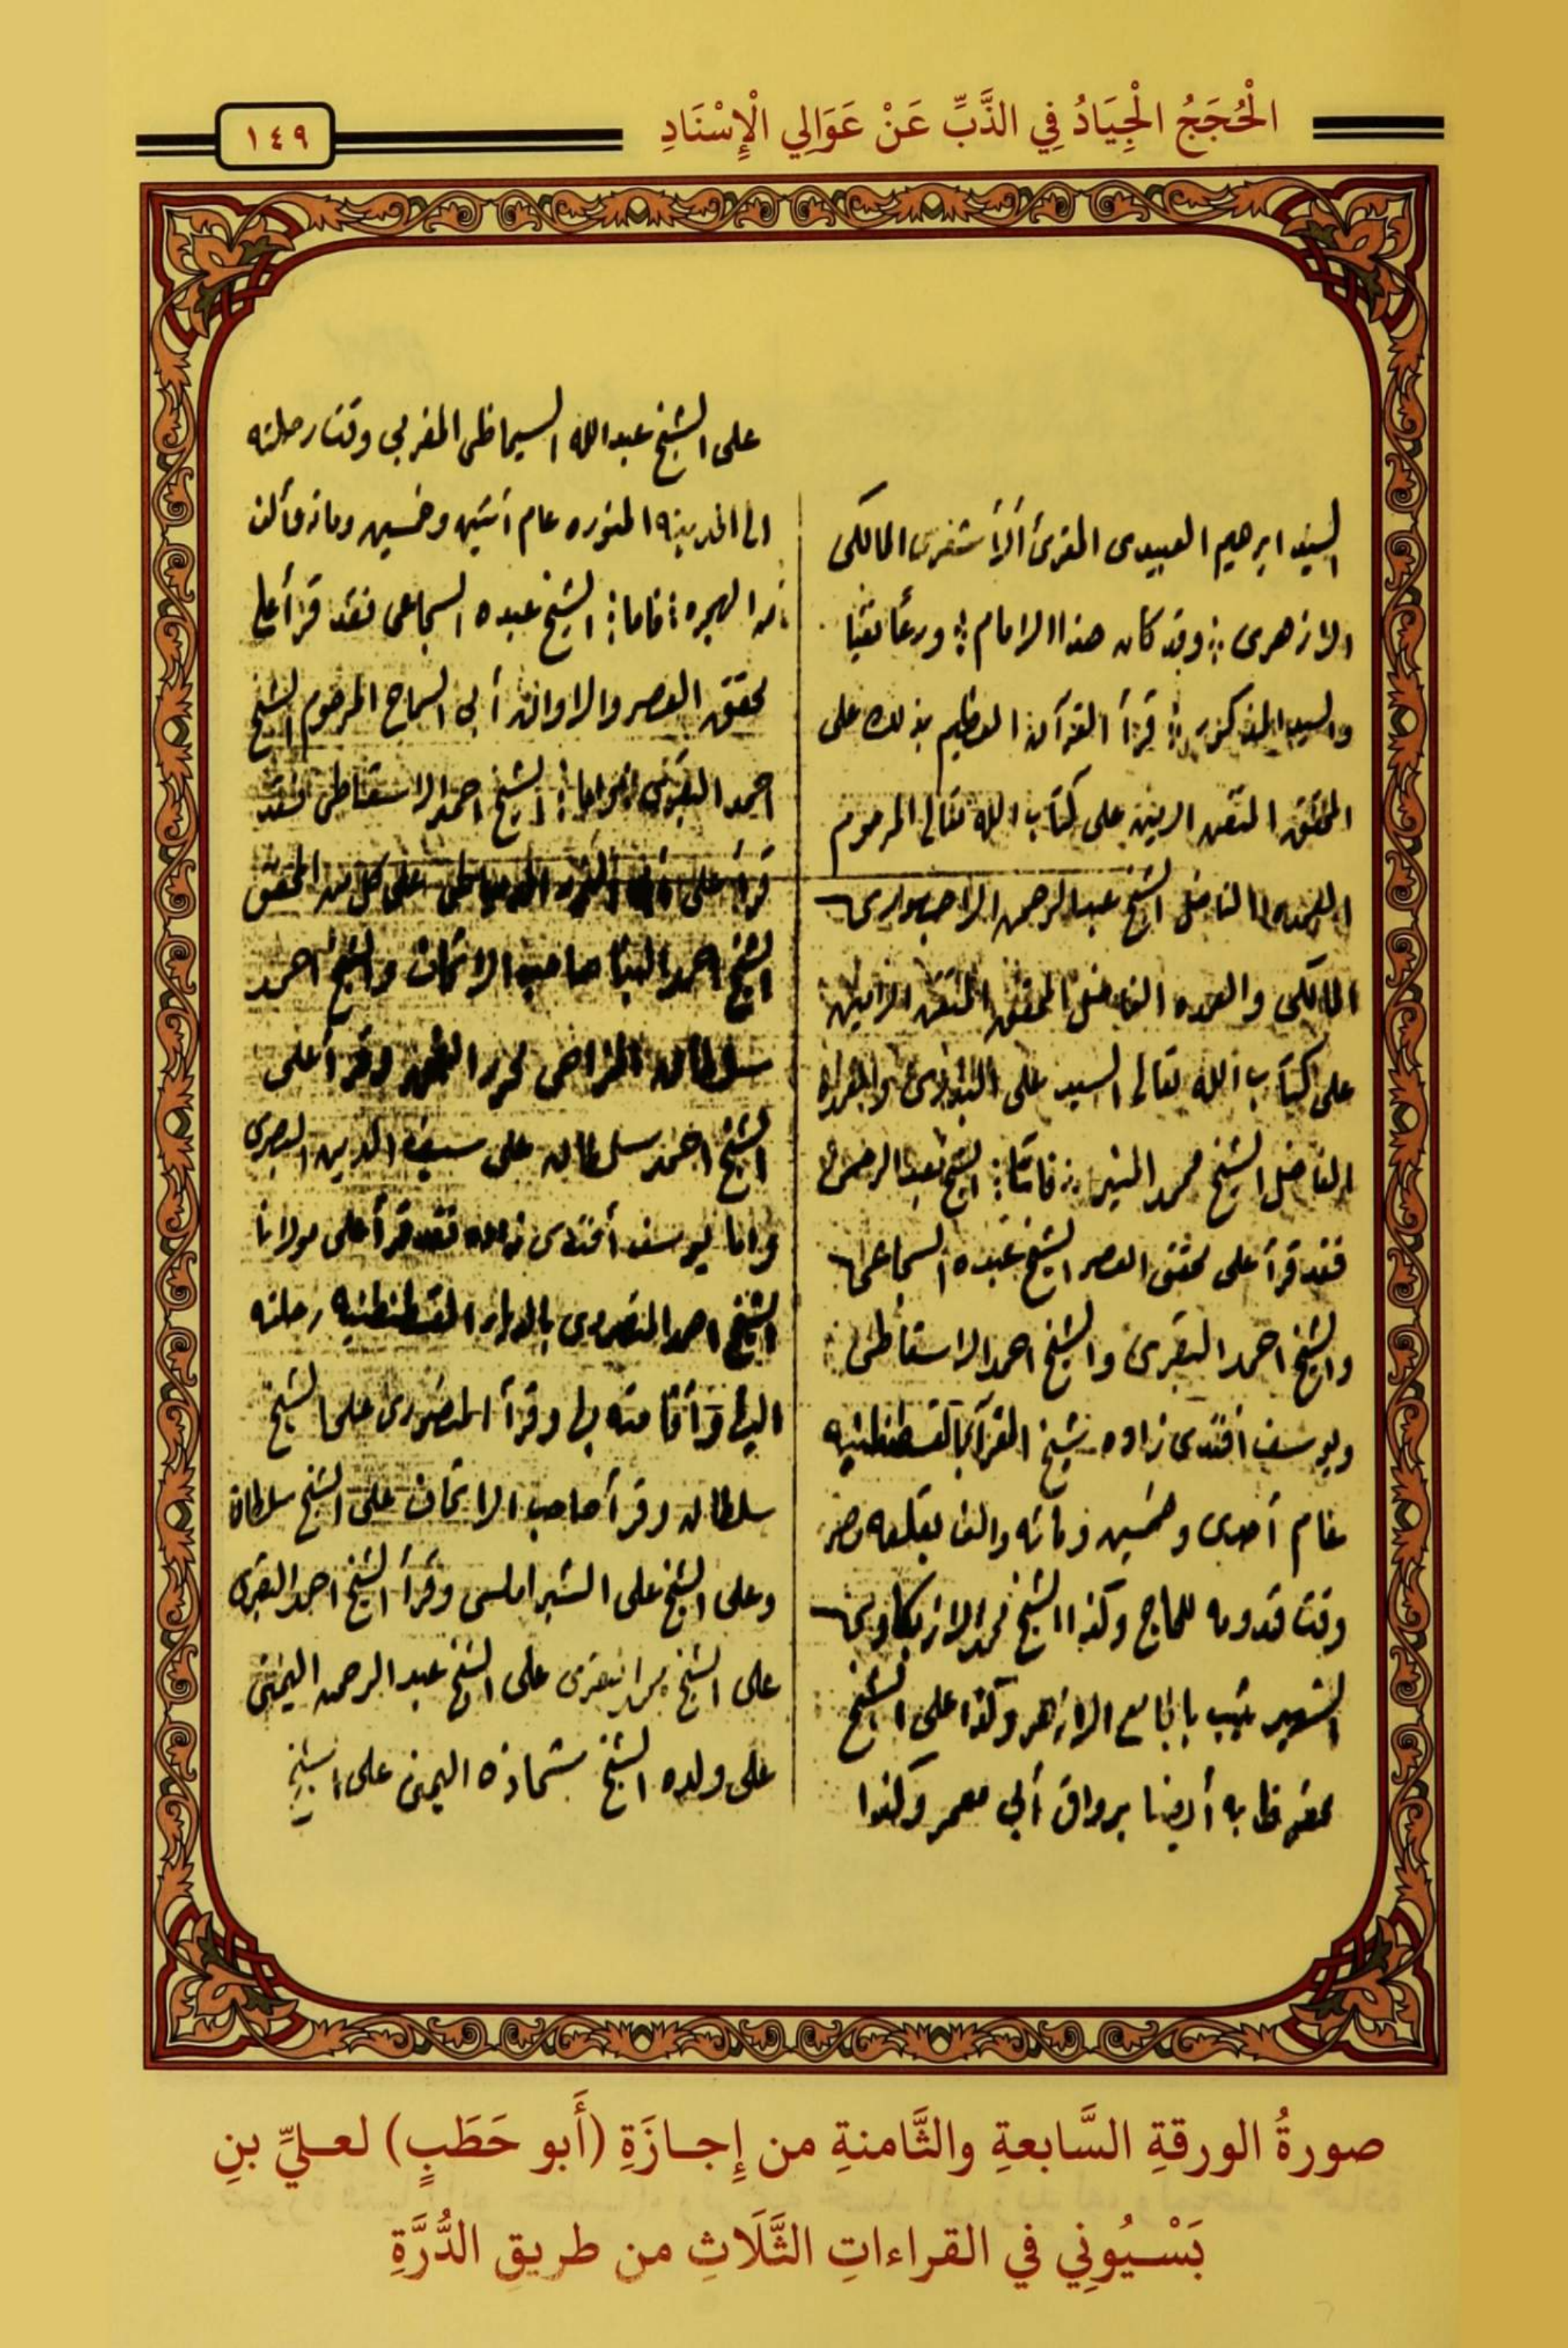 الْحُجَجُ الْجِيَادُ فِي الذَّبِّ عَنْ عَوَالِي الْإِسْنَادِ
١٤٩
السيد ابرهيم العبيدى المقرئ المالكى
الازهرى وقد كان هذا الامام ورعا تقيا
والسيد المذكور قرأ القرآن العظيم بذلك على
المحقق المتقن الامين على كتاب الله تعالى المرحوم
العمده الفاضل الشيخ عبد الرحمن الاجهورى
المالكى والعمده الفاضل المحقق المتقن الامين
على كتاب الله تعالى السيد على البدرى
الفاضل الشيخ محمد المنير الشيخ عبد الرحمن
فقد قرأ على محقق العصر الشيخ عبده السجاعى
والشيخ احمد البقرى والشيخ احمد الاسقاطى
ويوسف أفندى زاده شيخ القرآ بالقسطنطنيه
عام أحدى وخمسين ومائه والف بقلعه مصر
وقت قدومه للحاج وكذا الشيخ محمد الازبكاوى
الشهير بالجامع الازهر وكذا على الشيخ
محفوظ به أيضا برواق أبي معمر وكذا
على الشيخ عبد الله السيماظى المغربي وقت رحلته
الى المدينه المنوره عام أثنين وخمسين ومائه وألف
من الهجره فاما الشيخ عبده السجاعى فقد قرأ على
محقق العصر والاوان أبي السماح المرحوم الشيخ
احمد البقرى واما الشيخ احمد الاسقاطى فقد
قرأ على أبي النور الدمياطى على كل من المحقق
الشيخ احمد البنا صاحب الاتحاف والشيخ احمد
سلطان المزاحى محرر الفن وقرأ على
الشيخ احمد سلطان على سيف الدين البصرى
واما يوسف أفندى زاده فقد قرأ على مولانا
الشيخ احمد المنصورى القسطنطنيه رحلته
اليها وقرأ المنصورى على الشيخ
سلطان وقرأ صاحب الاتحاف على الشيخ سلطان
وعلى الشيخ على الشبراملسى وقرأ الشيخ احمد البقرى
على الشيخ البقرى على الشيخ عبد الرحمن اليمنى
على ولده الشيخ شحاذه اليمنى على الشيخ
صورةُ الورقةِ السَّابعةِ والثَّامنةِ من إِجازَةِ (أَبو حَطَبٍ) لعليِّ بنِ
بَسْيُونِي في القراءاتِ الثَّلَاثِ من طريقِ الدُّرَّةِ